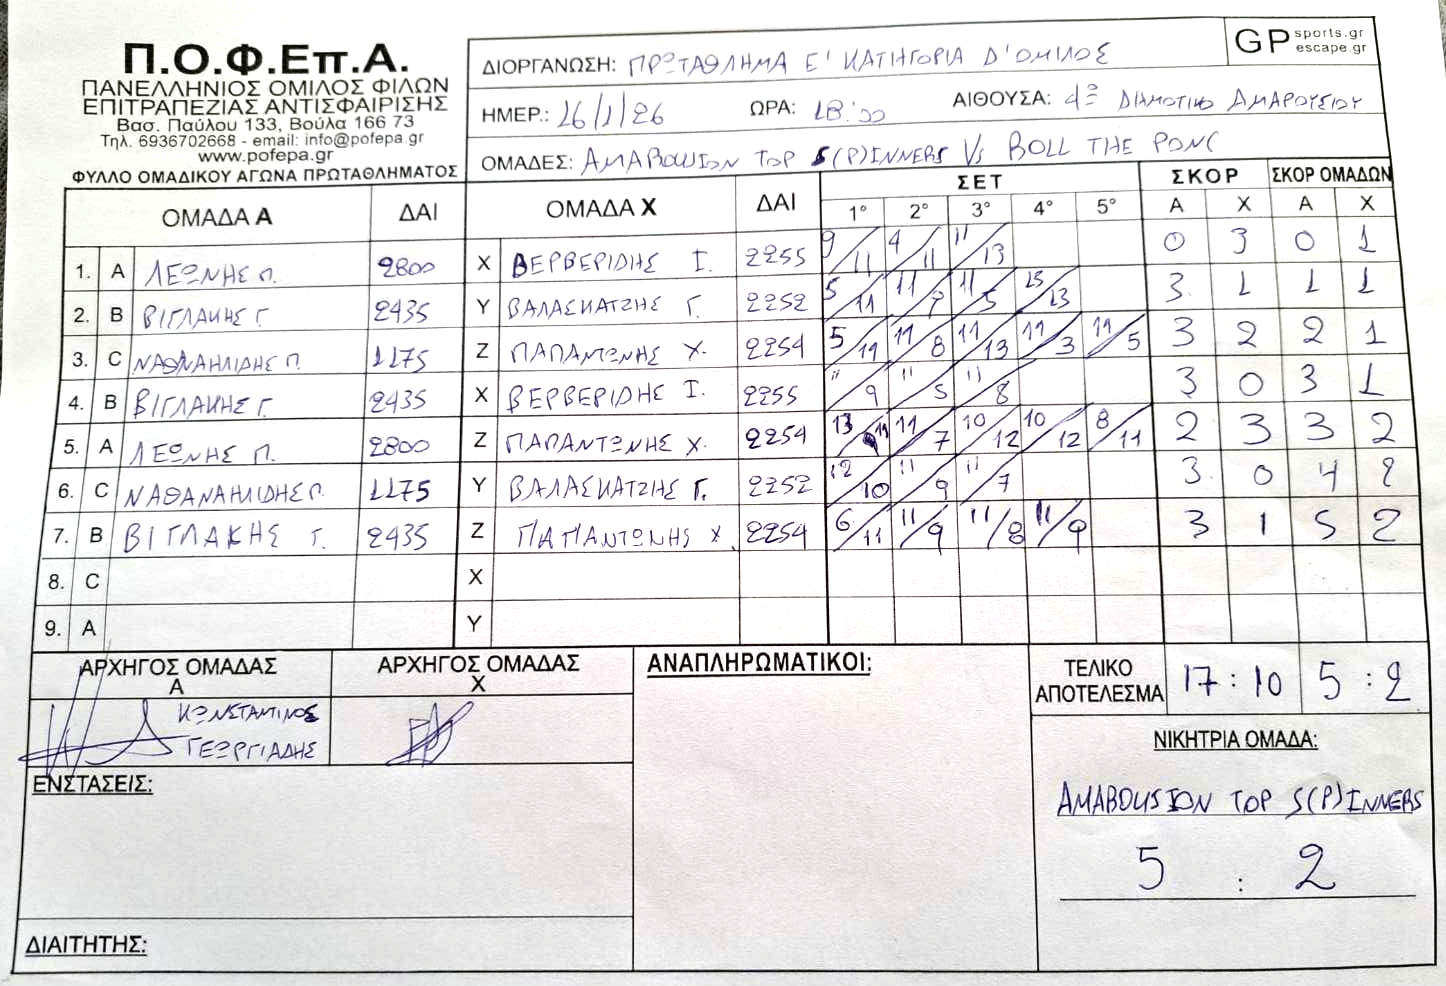 Π.Ο.Φ.Επ.Α.
ΠΑΝΕΛΛΗΝΙΟΣ ΟΜΙΛΟΣ ΦΙΛΩΝ
ΕΠΙΤΡΑΠΕΖΙΑΣ ΑΝΤΙΣΦΑΙΡΙΣΗΣ
Βασ. Παύλου 133, Βούλα 166 73
Τηλ. 6936702668 - email: info@pofepa.gr
www.pofepa.gr
ΦΥΛΛΟ ΟΜΑΔΙΚΟΥ ΑΓΩΝΑ ΠΡΩΤΑΘΛΗΜΑΤΟΣ
GP sports.gr
escape.gr
ΔΙΟΡΓΑΝΩΣΗ: ΠΡΩΤΑΘΛΗΜΑ Ε' ΚΑΤΗΓΟΡΙΑ Δ' ΟΜΙΛΟΣ
ΗΜΕΡ.: 26/1/26 ΩΡΑ: 18:00 ΑΙΘΟΥΣΑ: 4ο ΔΗΜΟΤΙΚΟ ΑΜΑΡΟΥΣΙΟΥ
ΟΜΑΔΕΣ: AMAROUSION TOP S(P)INNERS Vs ROLL THE PONG
ΟΜΑΔΑ Α ΔΑΙ ΟΜΑΔΑ Χ ΔΑΙ ΣΕΤ ΣΚΟΡ ΣΚΟΡ ΟΜΑΔΩΝ
1° 2° 3° 4° 5° Α Χ Α Χ
1. A ΛΕΩΝΗΣ Π. 2800 X ΒΕΡΒΕΡΙΔΗΣ Ι. 2255 9/11 4/11 11/13 0 3 0 1
2. B ΒΙΓΛΑΚΗΣ Γ. 2435 Y ΒΑΛΑΣΚΑΤΖΗΣ Γ. 2252 5/11 11/7 11/5 15/13 3 1 1 1
3. C ΝΑΘΑΝΑΗΛΙΔΗΣ Π. 1175 Z ΠΑΠΑΝΤΩΝΗΣ Χ. 2254 5/11 11/8 11/13 11/3 11/5 3 2 2 1
4. B ΒΙΓΛΑΚΗΣ Γ. 2435 X ΒΕΡΒΕΡΙΔΗΣ Ι. 2255 11/9 11/5 11/8 3 0 3 1
5. A ΛΕΩΝΗΣ Π. 2800 Z ΠΑΠΑΝΤΩΝΗΣ Χ. 2254 13/11 11/7 10/12 10/12 8/11 2 3 3 2
6. C ΝΑΘΑΝΑΗΛΙΔΗΣ Π. 1175 Y ΒΑΛΑΣΚΑΤΖΗΣ Γ. 2252 12/10 11/9 11/7 3 0 4 2
7. B ΒΙΓΛΑΚΗΣ Γ. 2435 Z ΠΑΠΑΝΤΩΝΗΣ Χ. 2254 6/11 11/9 11/8 11/9 3 1 5 2
8. C X
9. A Y
ΑΡΧΗΓΟΣ ΟΜΑΔΑΣ Α ΑΡΧΗΓΟΣ ΟΜΑΔΑΣ Χ ΑΝΑΠΛΗΡΩΜΑΤΙΚΟΙ:
ΤΕΛΙΚΟ ΑΠΟΤΕΛΕΣΜΑ 17 : 10 5 : 2
ΚΩΝΣΤΑΝΤΙΝΟΣ
ΓΕΩΡΓΙΑΔΗΣ
ΝΙΚΗΤΡΙΑ ΟΜΑΔΑ:
AMAROUSION TOP S(P)INNERS
5 : 2
ΕΝΣΤΑΣΕΙΣ:
ΔΙΑΙΤΗΤΗΣ: